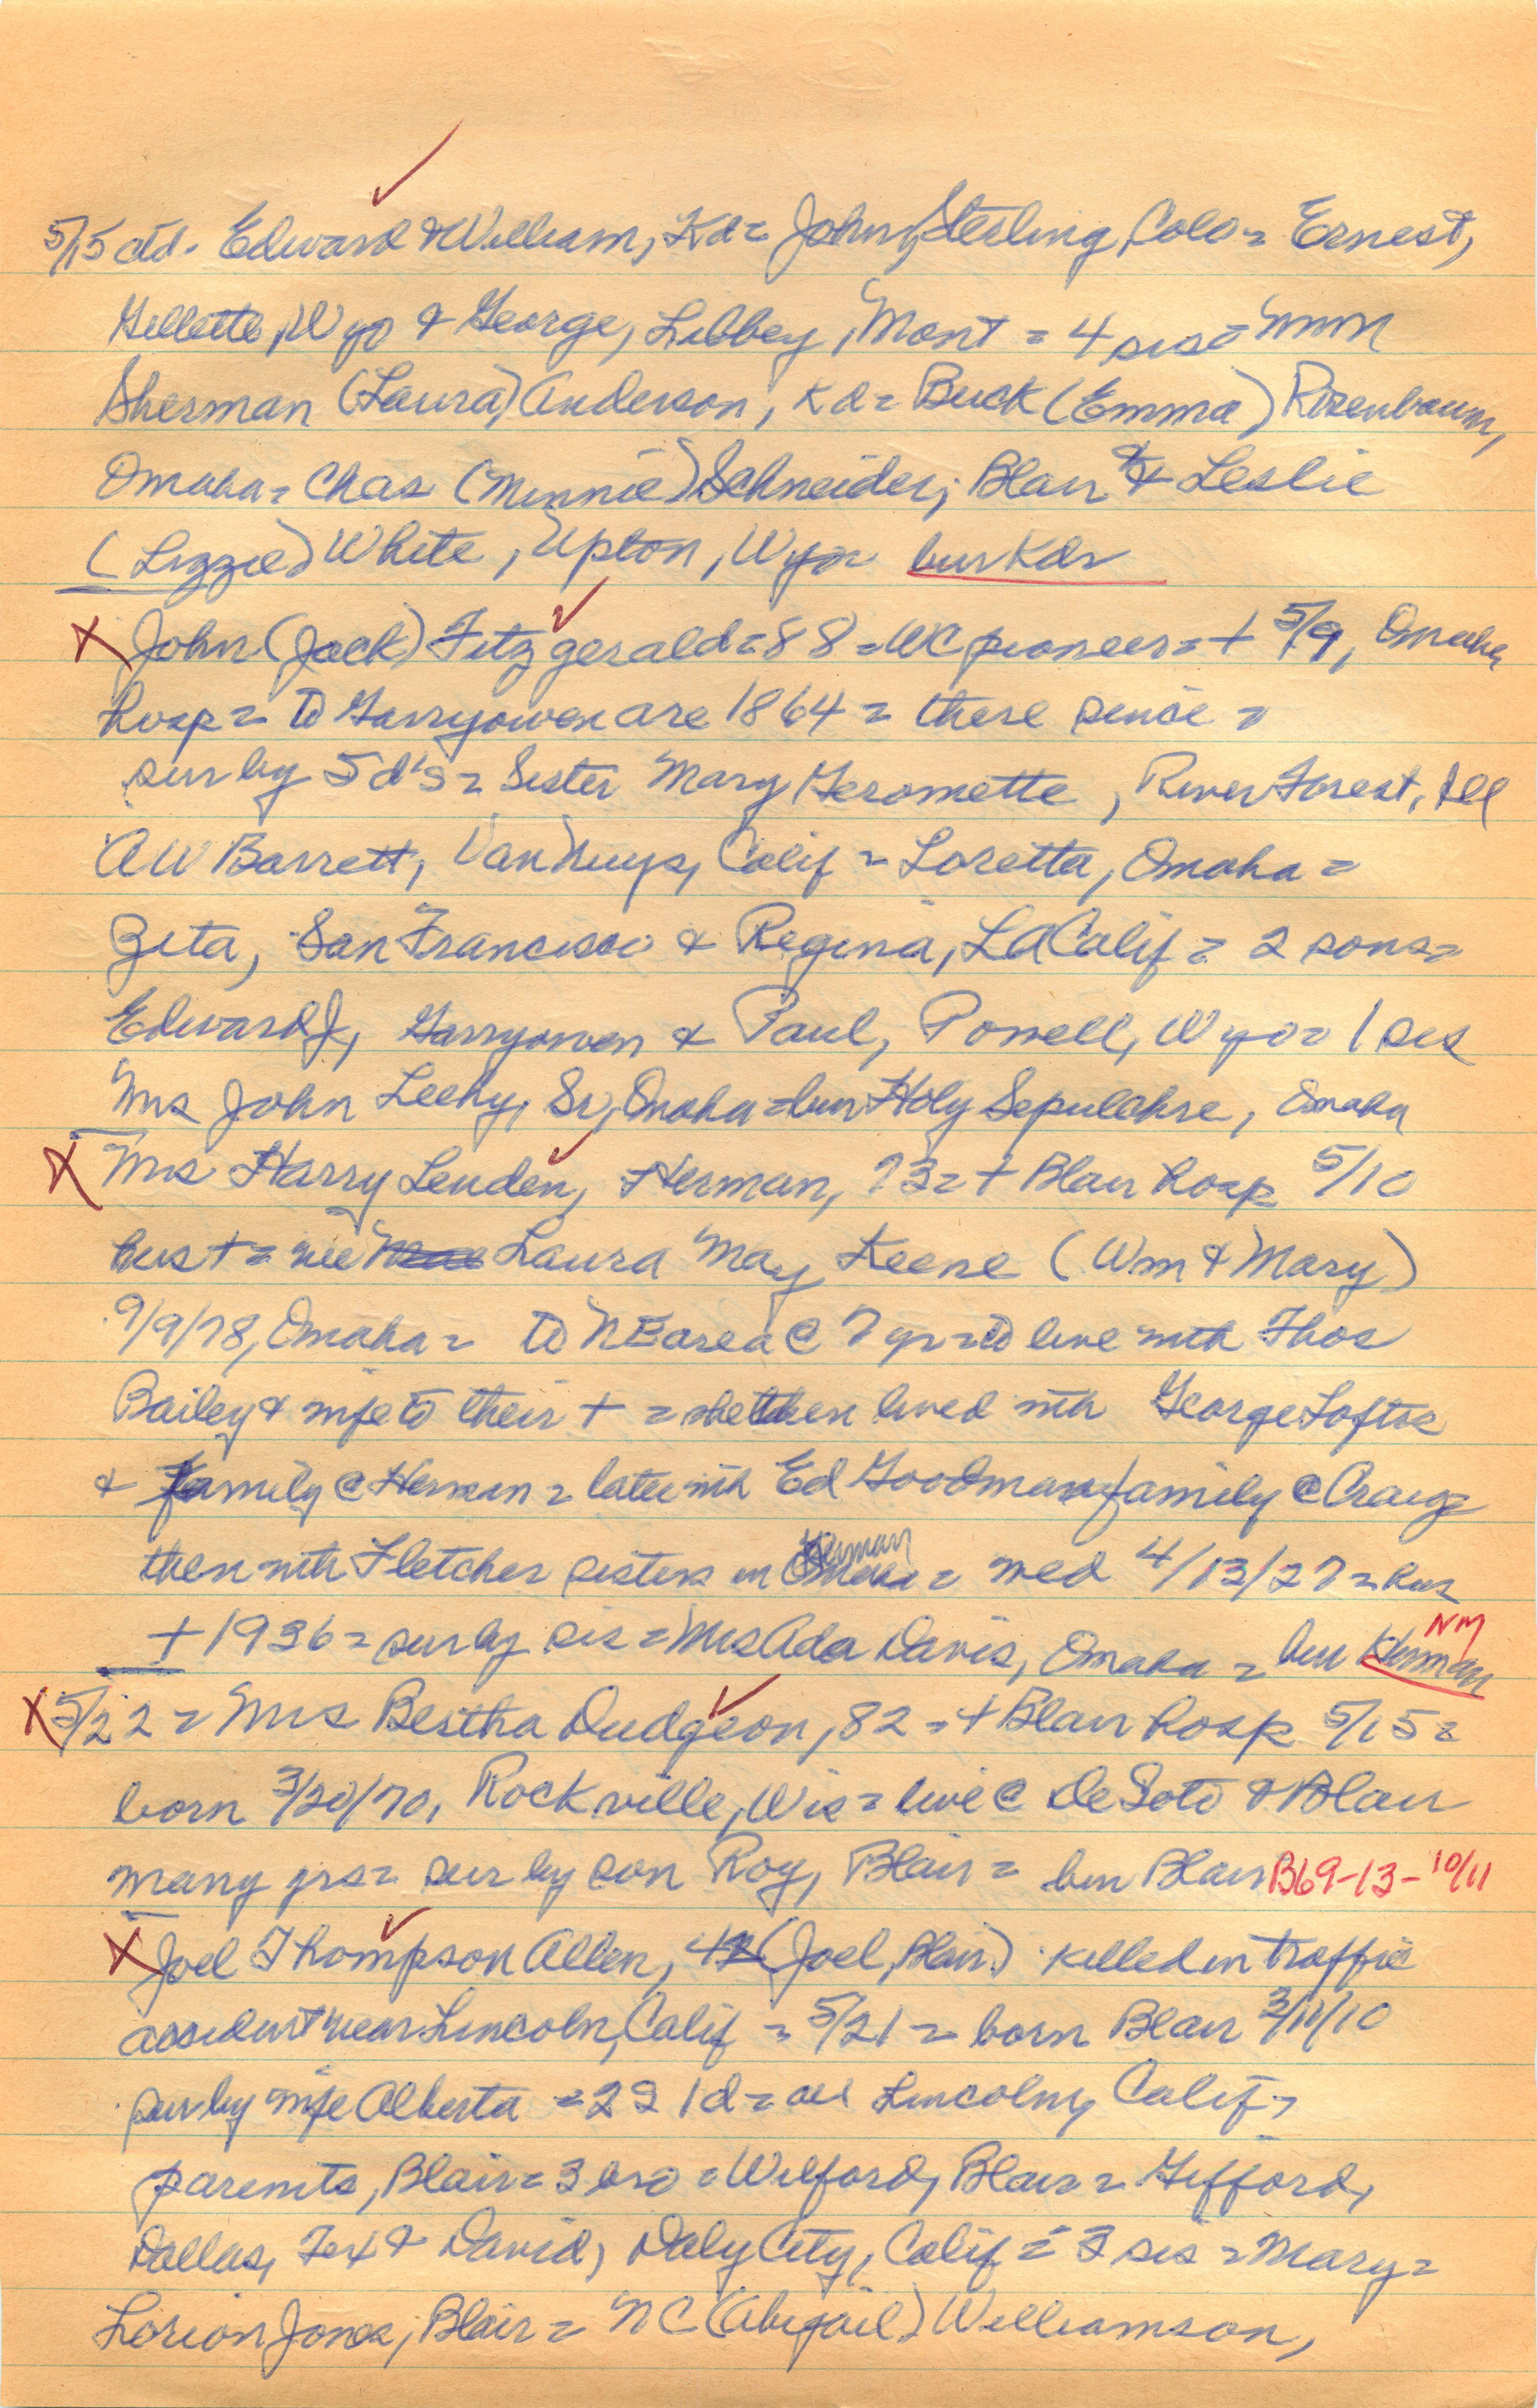 5/15 ctd. Edward & William, Kd = John, Sterling, Colo = Ernest,
Gillette, Wyo & George, Libbey, Mont = 4 sis =
Sherman (Laura) Anderson, Kd = Buck (Emma) Rosenbaum,
Omaha = Chas (Minnie) Schneider, Blair & Leslie
(Lizzie) White, Upton, Wyo = bur Kd =
X John (Jack) Fitzgerald = 88 = WC pioneer = + 5/9, Omaha
hosp = to Garryowen are 1864 = there since =
sur by 5 d's = Sister Mary Geromette, River Forest, Ill
AW Barrett, Van Nuys, Calif = Loretta, Omaha =
Zeta, San Francisco & Regina, LA Calif = 2 sons =
Edward J, Garryowen & Paul, Powell, Wyo = 1 sis
Mrs John Leehy, Sr, Omaha = bur Holy Sepulchre, Omaha
X Mrs Harry Lenden, Herman, 73 = + Blair hosp 5/10
hus + = nee Laura May Keene (Wm & Mary)
9/9/78, Omaha = to NE area @ 7 yr = to live with Thos
Bailey & wife to their + = she then lived with George Loftus
& family @ Herman = later with Ed Goodman family @ Craig =
then with Fletcher sisters in Herman = med 4/13/27 = hus
+ 1936 = sur by sis = Mrs Ada Davis, Omaha = bur Herman NM
X 5/22 = Mrs Bertha Dudgeon, 82 = + Blair hosp 5/15 =
born 3/20/70, Rockville, Wis = live @ De Soto & Blair
many yrs = sur by son Roy, Blair = bur Blair B69-13-10/11
X Joel Thompson Allen, 42 (Joel, Blair) killed in traffic
accident near Lincoln, Calif = 5/21 = born Blair 3/11/10
sur by wife Alberta = 2S 1d = all Lincoln, Calif =
parents, Blair = 3 bro = Wilford, Blair = Gifford,
Dallas, Tex & David, Daly City, Calif = 3 sis = Mary =
Lorion Jones, Blair = NC (Abigail) Williamson,